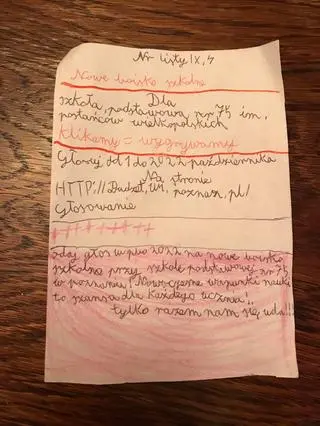 Nr listy IX, 4
Nowe boisko szkolne
Dla
szkoła podstawowa nr 75 im.
postańców wielkopolskich
klikamy = wygrywamy
Głosuj od 1 do 2022 października
Na stronie
HTTP://Budżet, um, poznań, pl/
Głosowanie
oddaj głos w pbo 2022 na nowe boisko
szkolne przy szkole podstawowej nr 75
w poznaniu! Nowoczesne warunki nauki
to szansa dla każdego ucznia!!
tylko razem nam się uda!!!